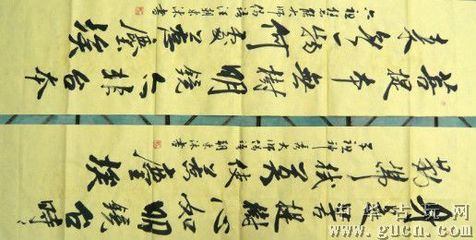 菩提本無樹明鏡亦非台本
来無一物何處惹塵埃
身是菩提樹心如明鏡台時
勤拂拭莫使惹塵埃
华古玩网
www.gucn.com